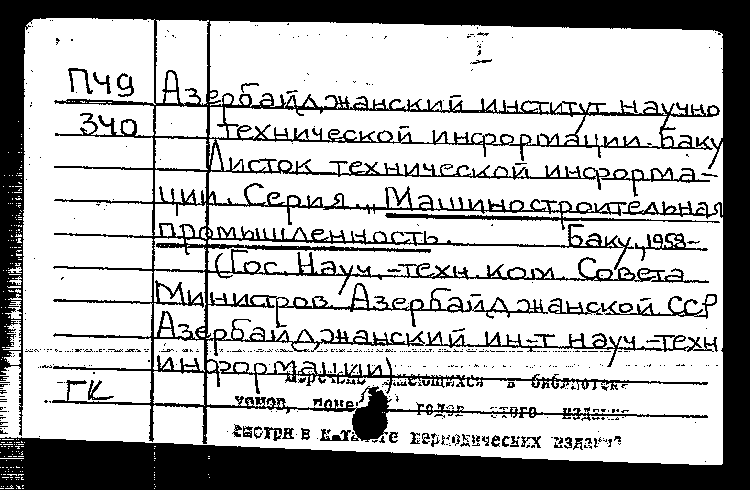 I
ПЧ9 Азербайджанский институт научно
340 технической информации. Баку
Листок технической информа-
ции. Серия „Машиностроительная
промышленность. Баку, 1958-
(Гос. Науч.-техн. ком. Совета
Министров Азербайджанской ССР
Азербайджанский ин-т науч.-техн.
информации)
Перечень имеющихся в библиотеке
ГК томов, годов этого издания
смотри в каталоге периодических изданий